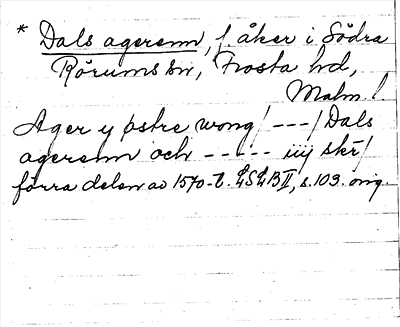 * Dals agerenn, f. åker i Södra
Rörums sn, Frosta hd,
Malm. l.
Ager y østre wong / --- / Dals
agerenn och ----- iiij skr /
förra delen av 1570-t. LSLB II, s. 103. orig.